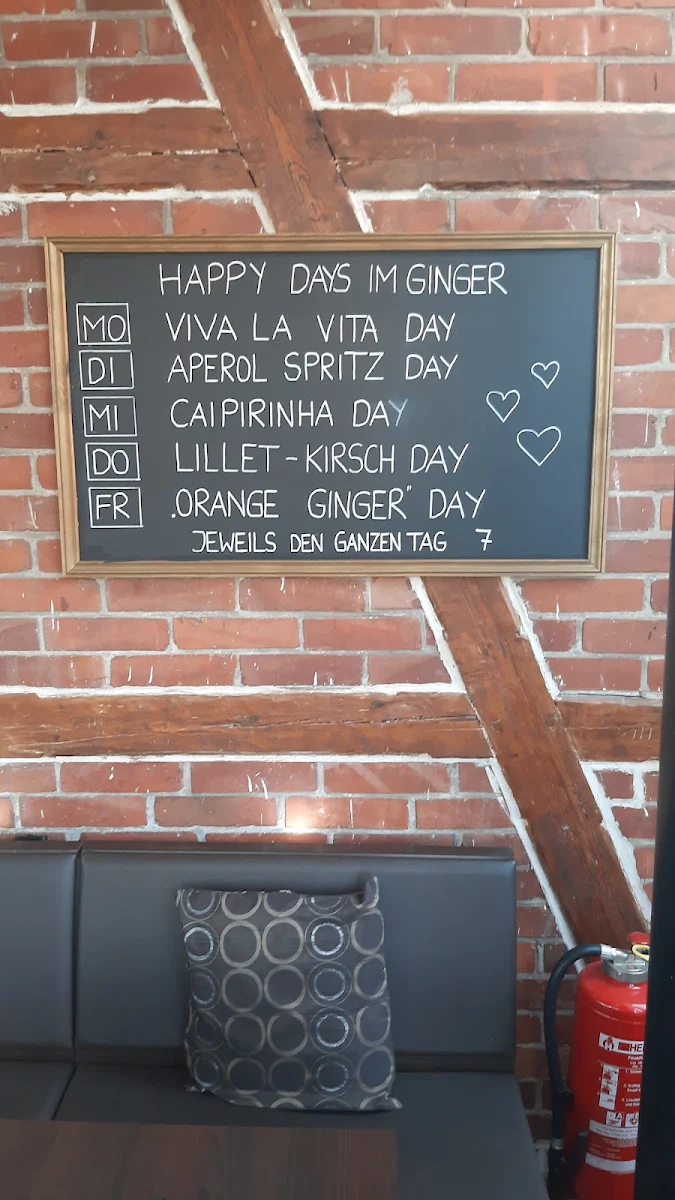 HAPPY DAYS IM GINGER
MO VIVA LA VITA DAY
DI APEROL SPRITZ DAY
MI CAIPIRINHA DAY
DO LILLET-KIRSCH DAY
FR „ORANGE GINGER" DAY
JEWEILS DEN GANZEN TAG 7